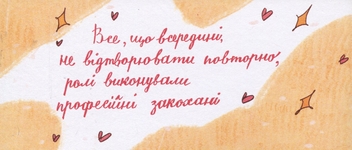 Все, що всередині,
не відтворювати повторно,
ролі виконували
професійні закохані